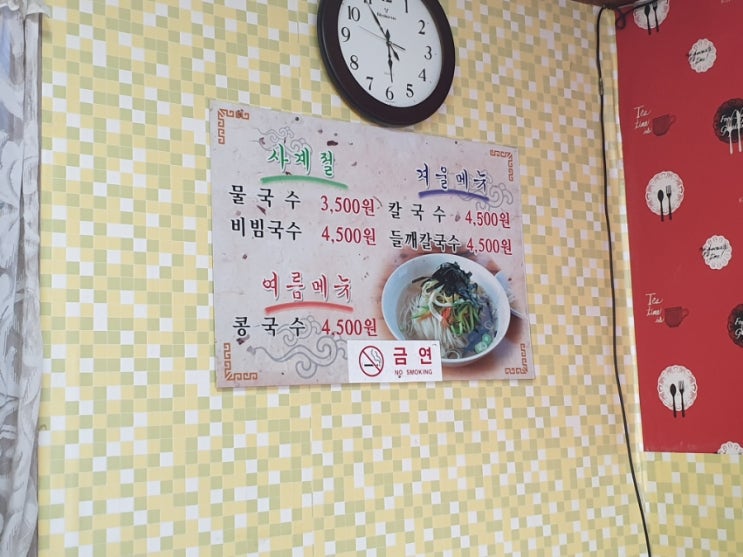 사계절
물국수 3,500원
비빔국수 4,500원
여름메뉴
콩국수 4,500원
겨울메뉴
칼국수 4,500원
들깨칼국수 4,500원
금연
NO SMOKING
Tea
time
is
Tea
time
is